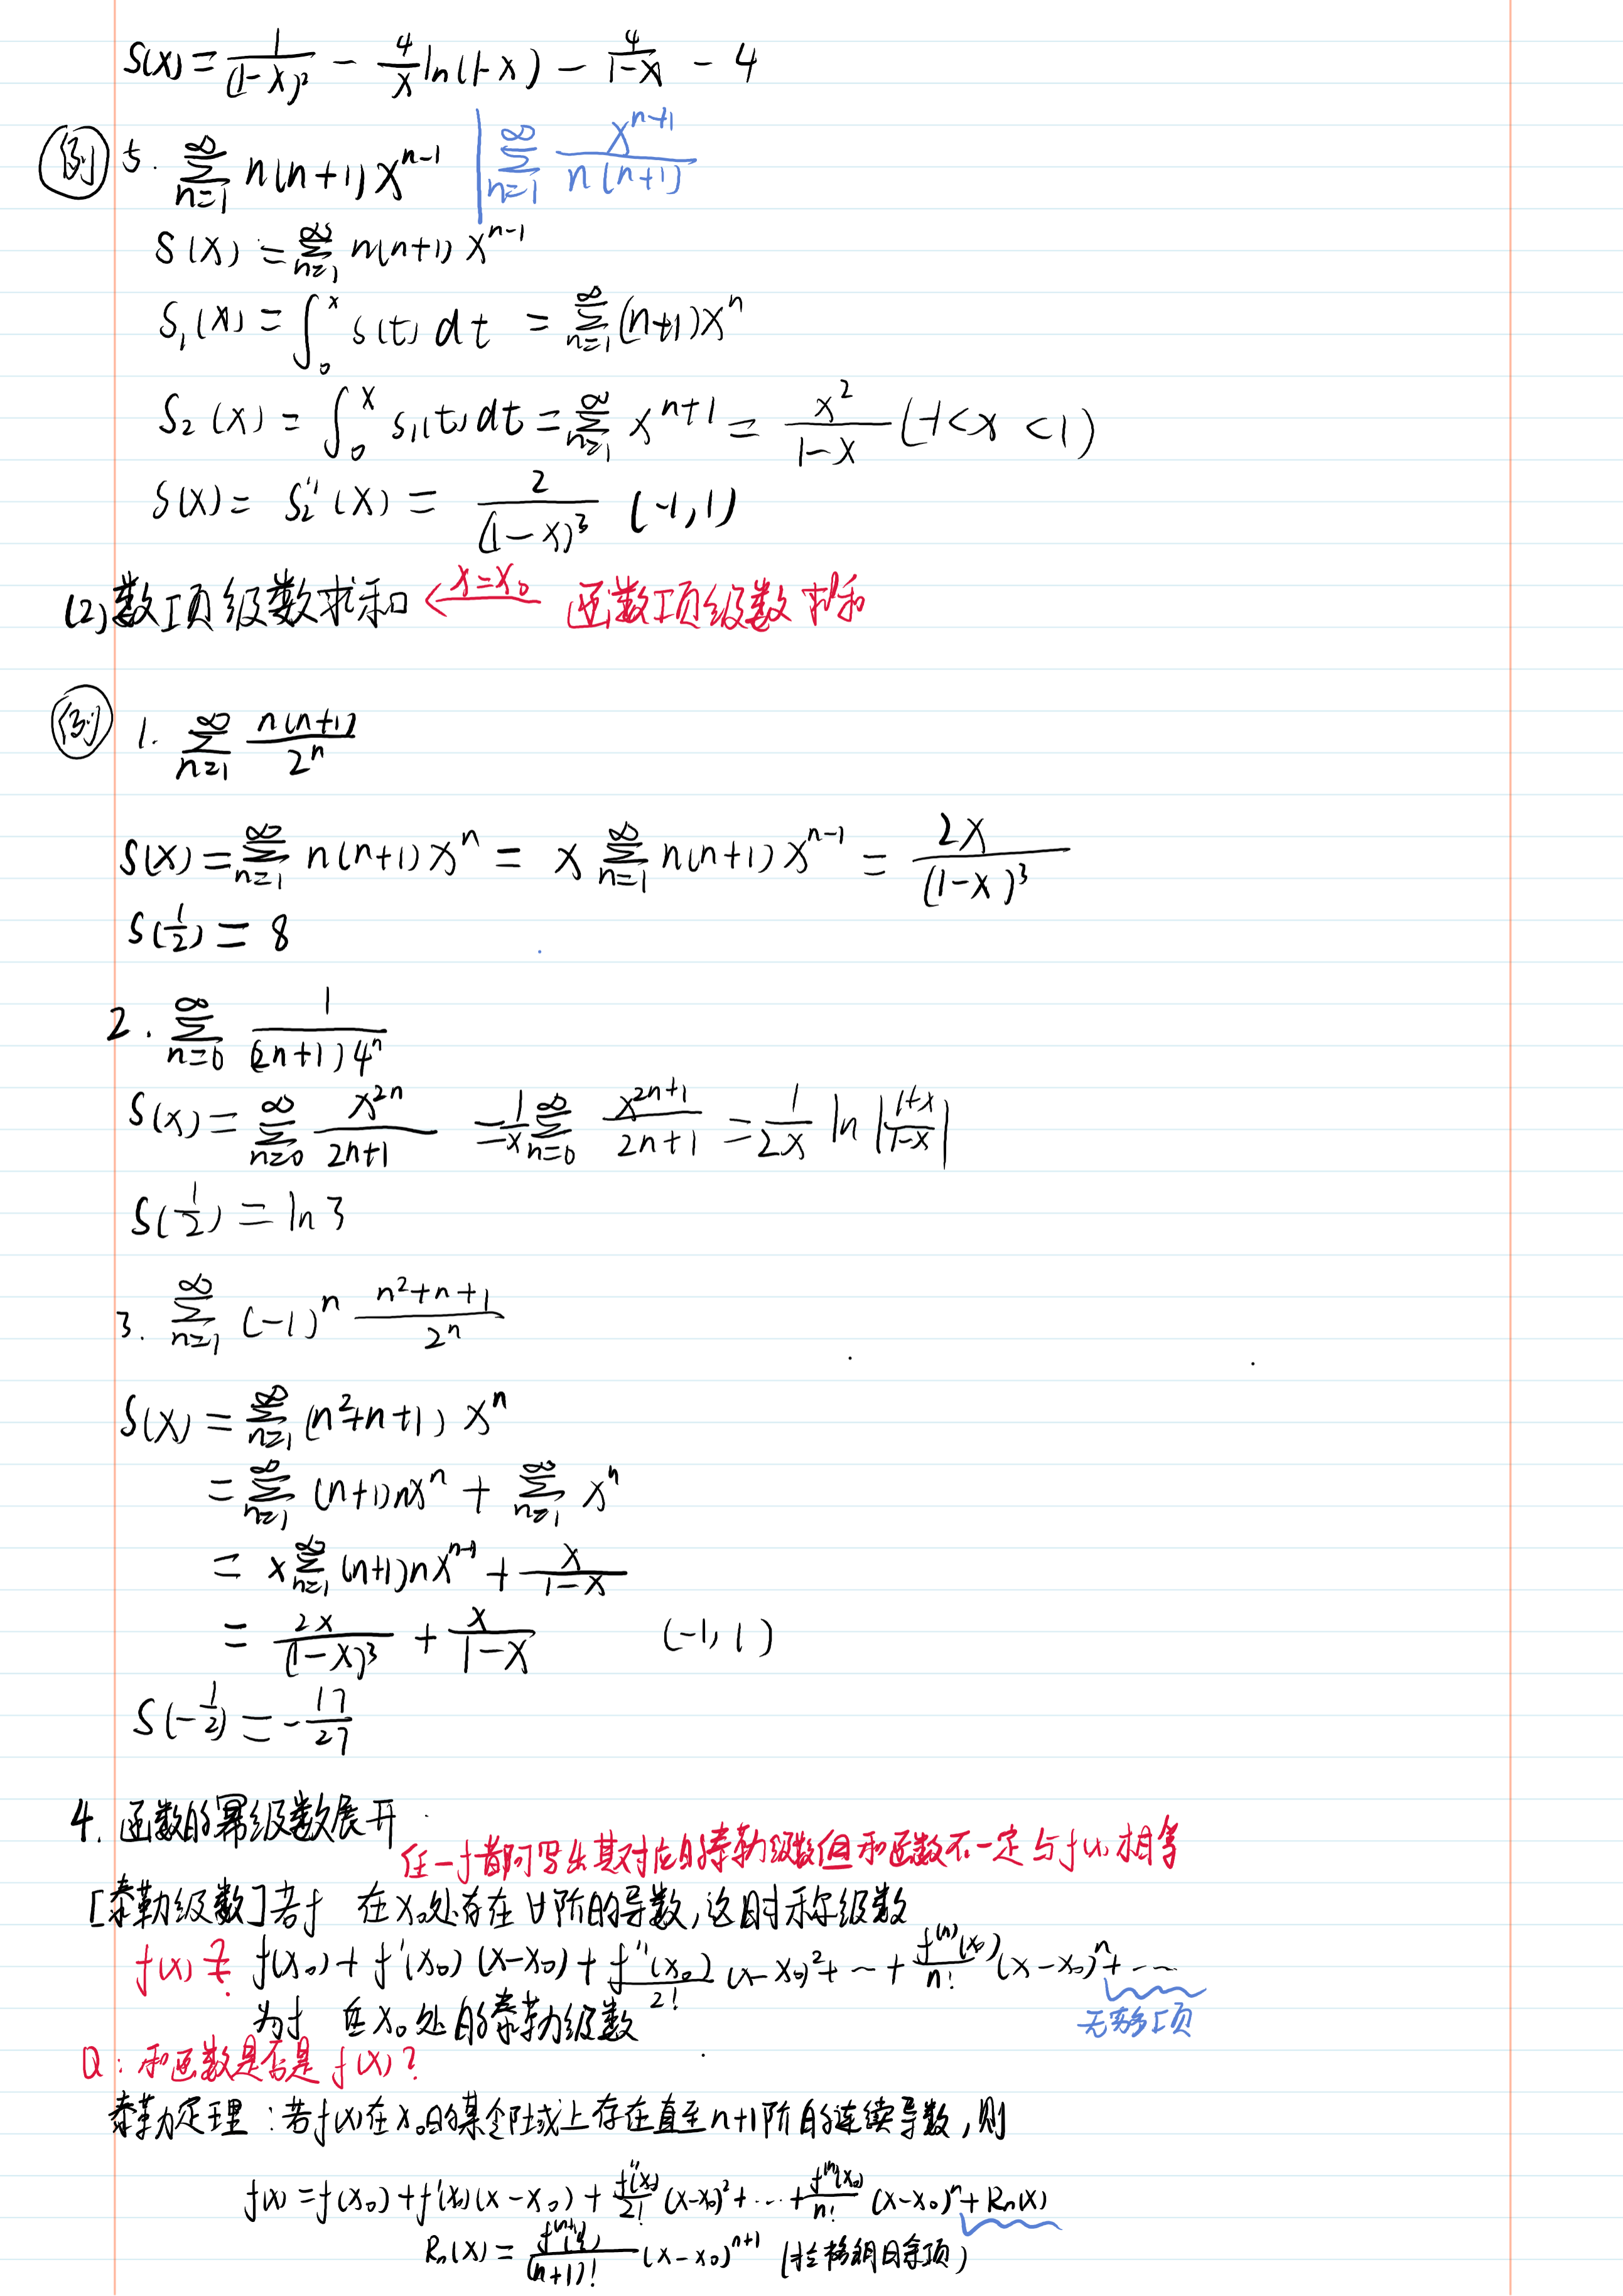 S(x) = \frac{1}{(1-x)^2} - \frac{4}{x} ln(1-x) - \frac{4}{1-x} - 4
例 5. \sum_{n=1}^{∞} n(n+1) x^{n-1} | \sum_{n=1}^{∞} \frac{x^{n+1}}{n(n+1)}
S(x) = \sum_{n=1}^{∞} n(n+1) x^{n-1}
S_1(x) = \int_0^x s(t) dt = \sum_{n=1}^{∞} (n+1) x^n
S_2(x) = \int_0^x s_1(t) dt = \sum_{n=1}^{∞} x^{n+1} = \frac{x^2}{1-x} (-1<x<1)
S(x) = S_2''(x) = \frac{2}{(1-x)^3} (-1,1)
(2) 数项级数求和 \xleftarrow{x=x_0} 函数项级数求和
例 1. \sum_{n=1}^{∞} \frac{n(n+1)}{2^n}
S(x) = \sum_{n=1}^{∞} n(n+1) x^n = x \sum_{n=1}^{∞} n(n+1) x^{n-1} = \frac{2x}{(1-x)^3}
S(\frac{1}{2}) = 8
2. \sum_{n=0}^{∞} \frac{1}{(2n+1)4^n}
S(x) = \sum_{n=0}^{∞} \frac{x^{2n}}{2n+1} = \frac{1}{x} \sum_{n=0}^{∞} \frac{x^{2n+1}}{2n+1} = \frac{1}{2x} ln |\frac{1+x}{1-x}|
S(\frac{1}{2}) = ln 3
3. \sum_{n=1}^{∞} (-1)^n \frac{n^2+n+1}{2^n}
S(x) = \sum_{n=1}^{∞} (n^2+n+1) x^n
= \sum_{n=1}^{∞} (n+1)n x^n + \sum_{n=1}^{∞} x^n
= x \sum_{n=1}^{∞} (n+1)n x^{n-1} + \frac{x}{1-x}
= \frac{2x}{(1-x)^3} + \frac{x}{1-x} (-1,1)
S(-\frac{1}{2}) = -\frac{17}{27}
4. 函数的幂级数展开
任一f都可写出其对应的泰勒级数但和函数不一定与f(x)相等
[泰勒级数]若f 在x_0处存在∀阶的导数,这时称级数
f(x) \overset{?}{=} f(x_0) + f'(x_0)(x-x_0) + \frac{f''(x_0)}{2!}(x-x_0)^2 + … + \frac{f^{(n)}(x_0)}{n!}(x-x_0)^n + …
无穷多项
为f 在x_0处的泰勒级数
Q: 和函数是否是 f(x)?
泰勒定理:若f(x)在x_0的某邻域上存在直至n+1阶的连续导数,则
f(x) = f(x_0) + f'(x_0)(x-x_0) + \frac{f''(x_0)}{2!}(x-x_0)^2 + … + \frac{f^{(n)}(x_0)}{n!}(x-x_0)^n + R_n(x)
R_n(x) = \frac{f^{(n+1)}(ξ)}{(n+1)!}(x-x_0)^{n+1} (拉格朗日余项)